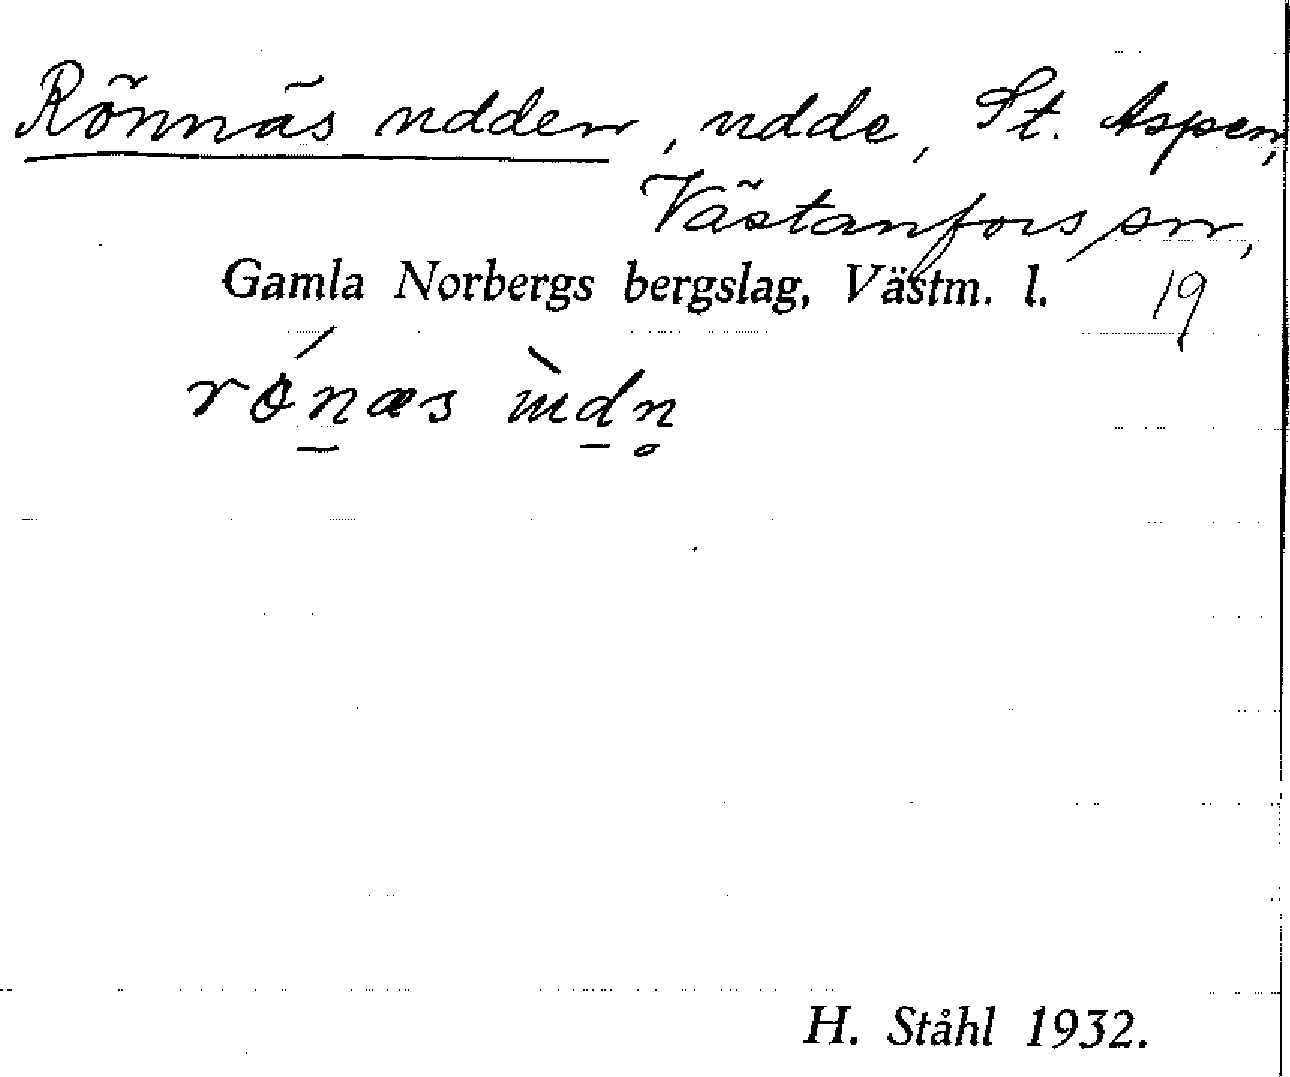 Rönnäs udden, udde, St. Aspen,
Västanfors sn,
Gamla Norbergs bergslag, Västm. l. 19
H. Ståhl 1932.